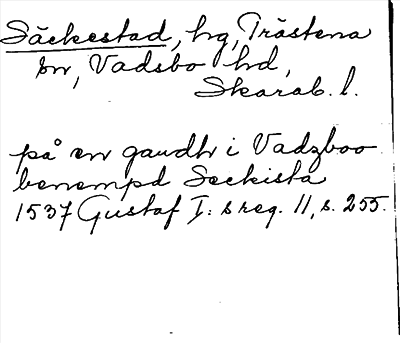 Säckestad, hg, Trästena
sn, Vadsbo hd,
Skarab. l.
på en gaudh i Vadzboo
benempd Seckista
1537 Gustaf I: s reg. 11, s. 255.